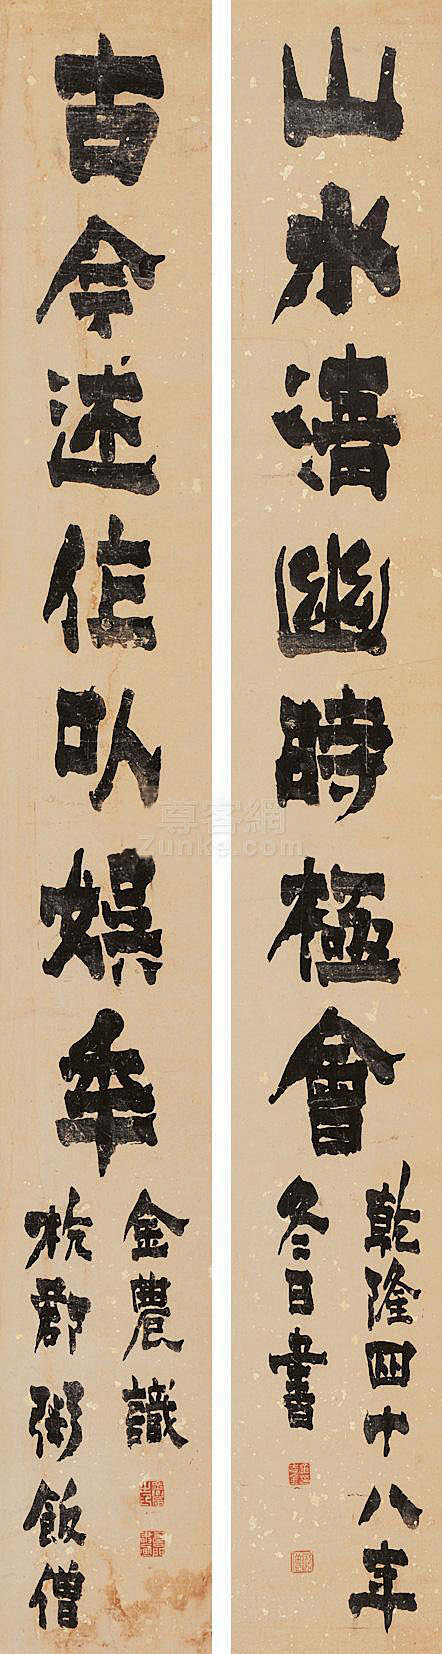 山水清幽時極會
乾隆四十八年
冬日書
古今述作以娛年
金農識
杭郡粥飯僧
尊客網
Zunke.com